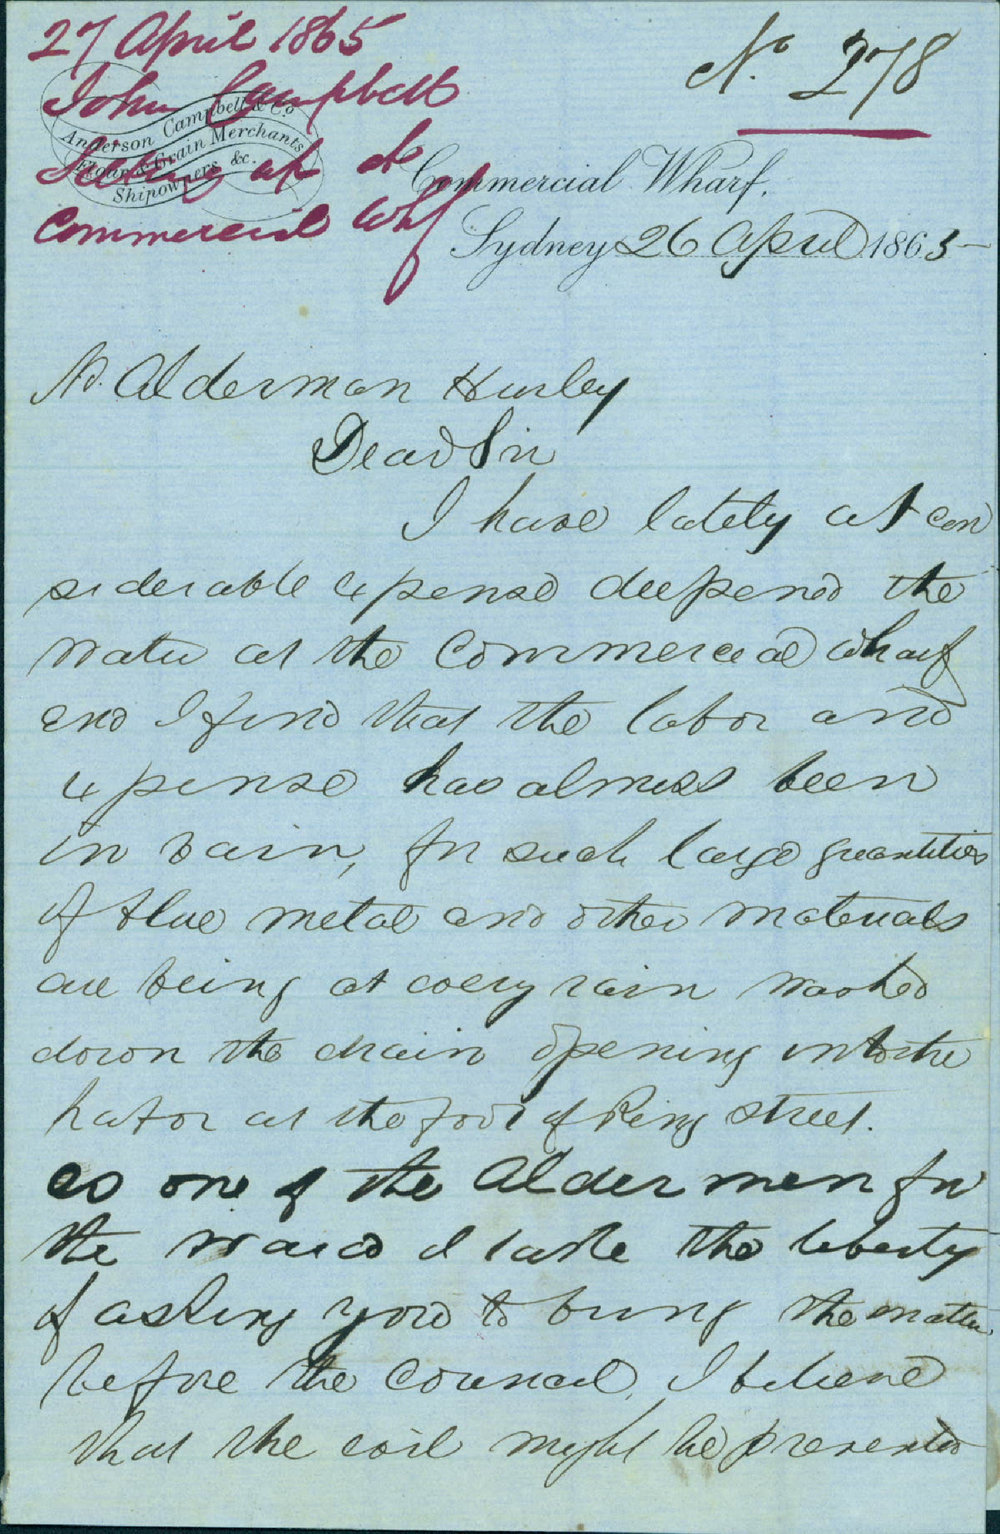 27 April 1865
No. 278
John Campbell
Anderson Campbell & Co
Flour & Grain Merchants
Shipowners &c.
Silting up at
Commercial Whf
Commercial Wharf,
Sydney 26 April 1865
Alderman Hurley
Dear Sir
I have lately at con
siderable expense deepened the
water at the Commercial wharf
and I find that the labor and
expense has almost been
in vain, for such large quantities
of blue metal and other materials
are being at every rain washed
down the drain opening into the
harbor at the foot of King Street.
as one of the Aldermen for
the ward I take the liberty
of asking you to bring the matter
before the Council, I believe
that the evil might be prevented